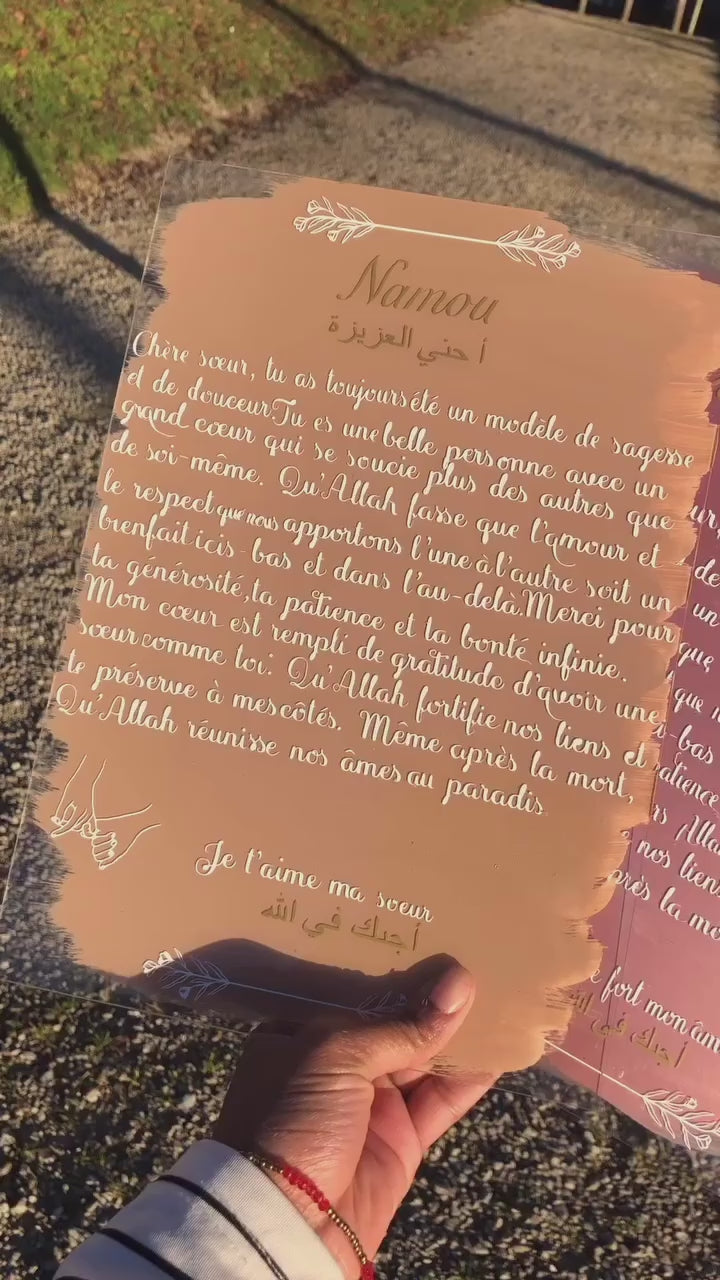 Namou
أ حني العزيزة
Chère sœur, tu as toujours été un modèle de sagesse
et de douceur.Tu es une belle personne avec un
grand cœur qui se soucie plus des autres que
de soi-même. Qu'Allah fasse que l'amour et
le respect que nous apportons l'une à l'autre soit un
bienfait icis-bas et dans l'au-delà.Merci pour
ta générosité,ta patience et ta bonté infinie.
Mon cœur est rempli de gratitude d'avoir une
sœur comme toi. Qu'Allah fortifie nos liens et
te préserve à mes côtés. Même après la mort,
Qu'Allah réunisse nos âmes au paradis.
Je t'aime ma sœur
أحبك في الله
ur,
de
un
que,
que n
s-bas
atience,
rs Alla
nos lien
près la mo
e fort mon âm
أحبك في الله